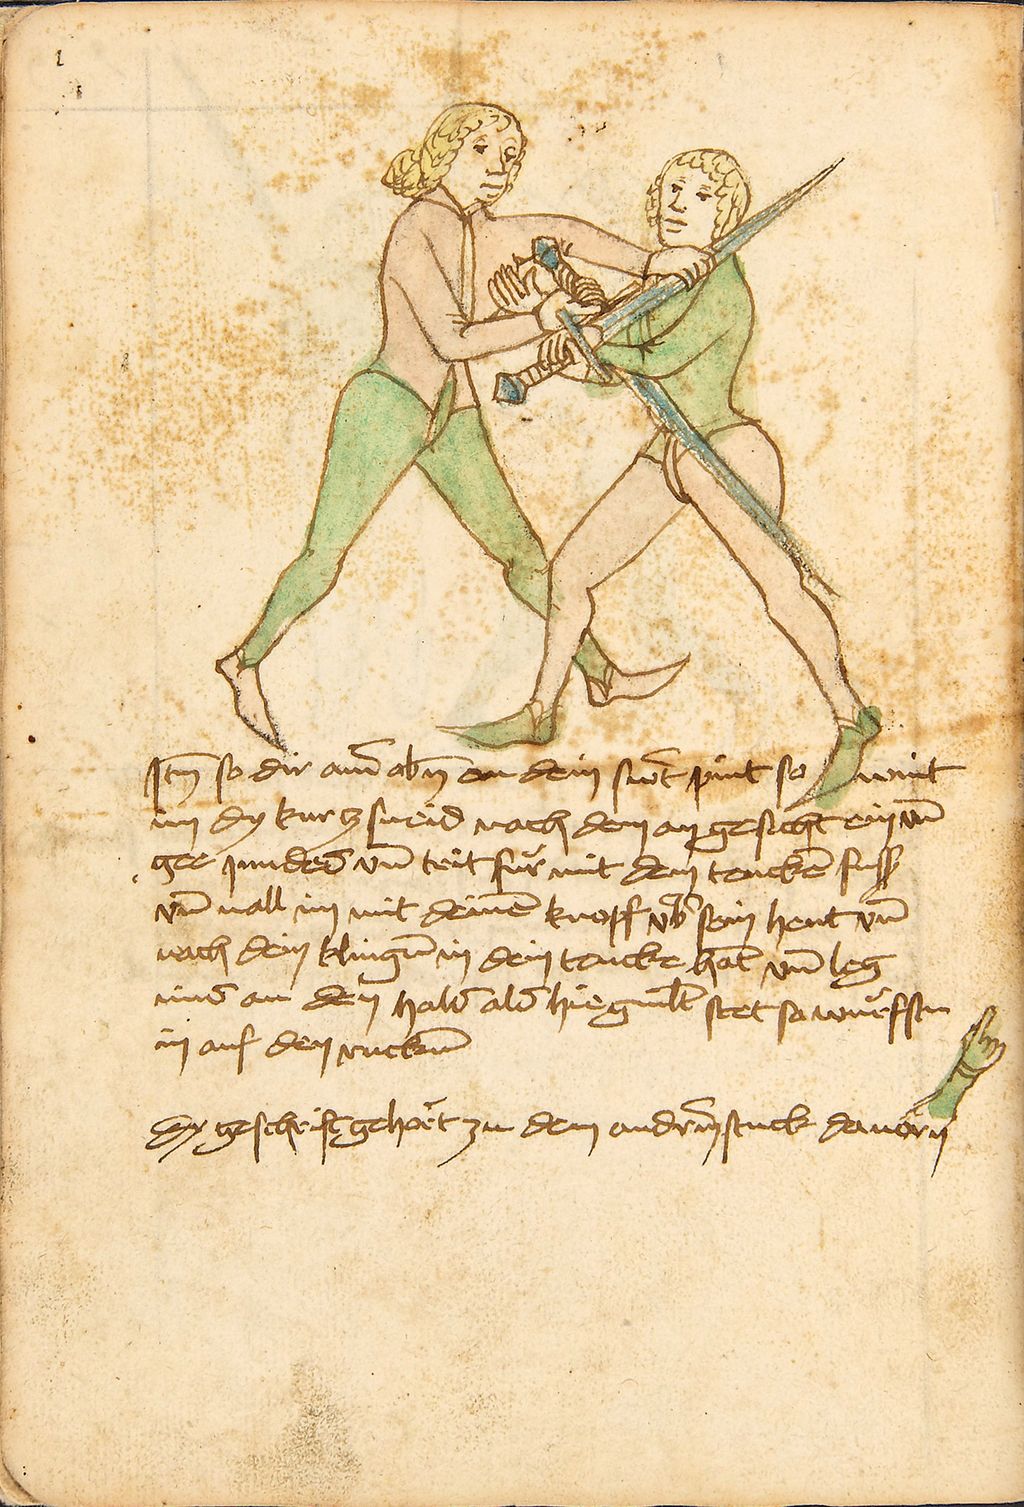 Itm̄ so dir ainr̄ obn̄ an dein swᵉt pint so wint
im dy kurcz sneid nach dem angesicht ein vn̄
gee pnuder vn̄ trit fuͤr mit dem rencken fuss
vn̄ vall im mit deinē knopff vbᵉ sein hent vn̄
nach dein klingn̄ in dein tencke hāt vn̄ leg
ims an den hals als hie gmālt stet so wuͤrfstu
in auf den ruckn̄
dy geschrift gehoͤrt zu dem andrn̄ stuck dauorn